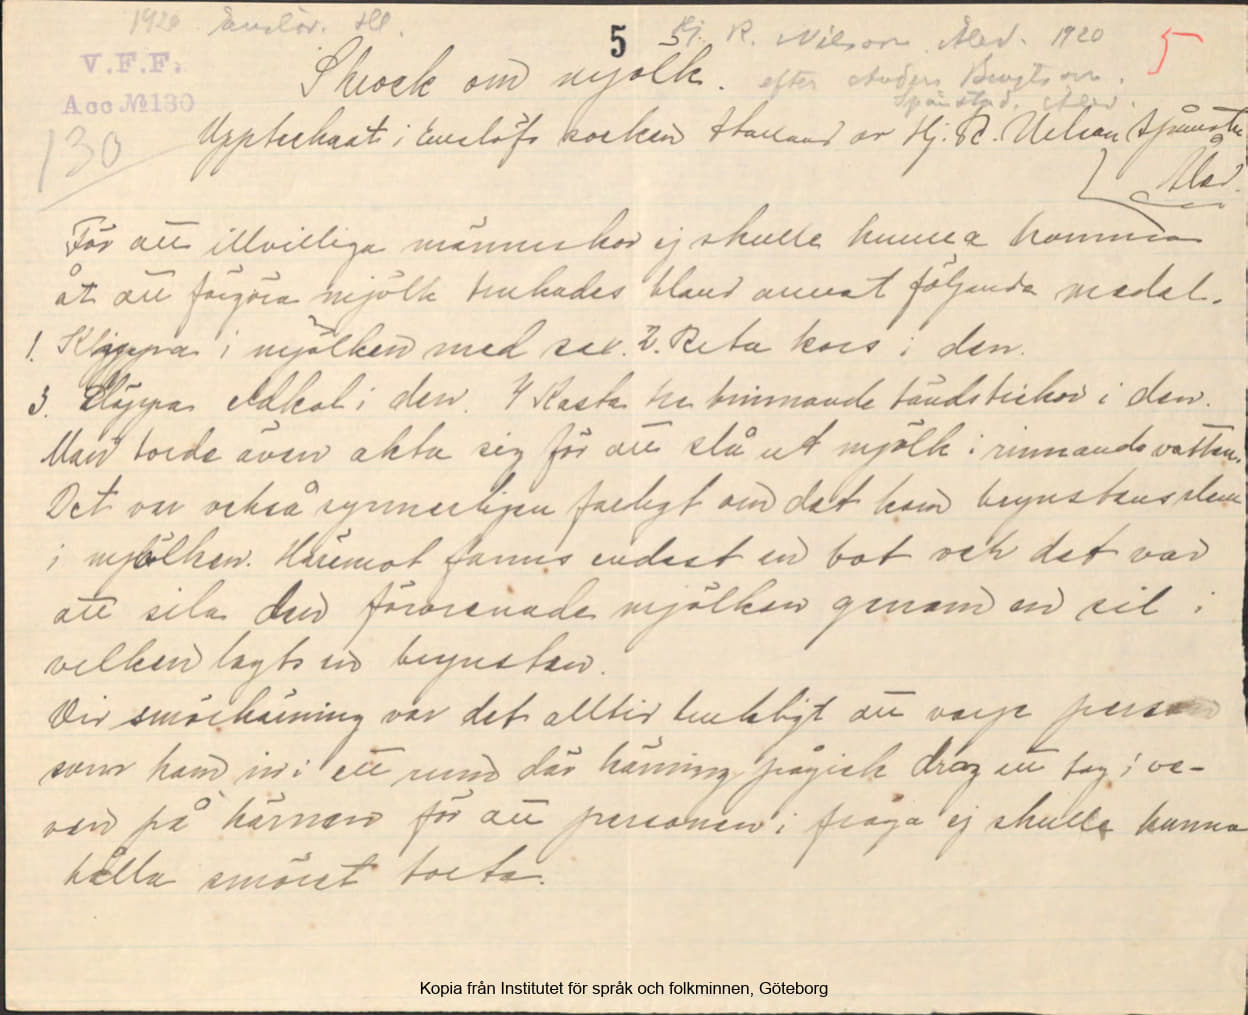 1920 Enslöv. Hl.
5
Hj. R. Nilsson Åled. 1920
5
V.F.F.
Acc. № 130
130
Skrock om mjölk.
efter Anders Bengtsson.
Spånstad. Åled.
Upptecknat i Enslöfs socken Halland av Hj. R. Nilsson
Åled.
För att illvilliga människor ej skulle kunna komma
åt att förgöra mjölk brukades bland annat följande medel.
1. Klippa i mjölken med sax. 2. Reta kors i den.
3. Släppa eldkol i den. 4 Kasta tre brinnande tändstickor i den.
Man borde även akta sig för att slå ut mjölk i rinnande vatten.
Det var också synnerligen farligt om det kom brynstensslam
i mjölken. Häremot fanns endast en bot och det var
att sila den förorenade mjölken genom en sil i
vilken lagts en brynsten.
Vid smörkärning var det alltid brukligt att varje person
som kom in i ett rum där kärning pågick drog ett tag i ve-
ven på kärnan för att personen i fråga ej skulle kunna
hålla smöret borta.
Kopia från Institutet för språk och folkminnen, Göteborg